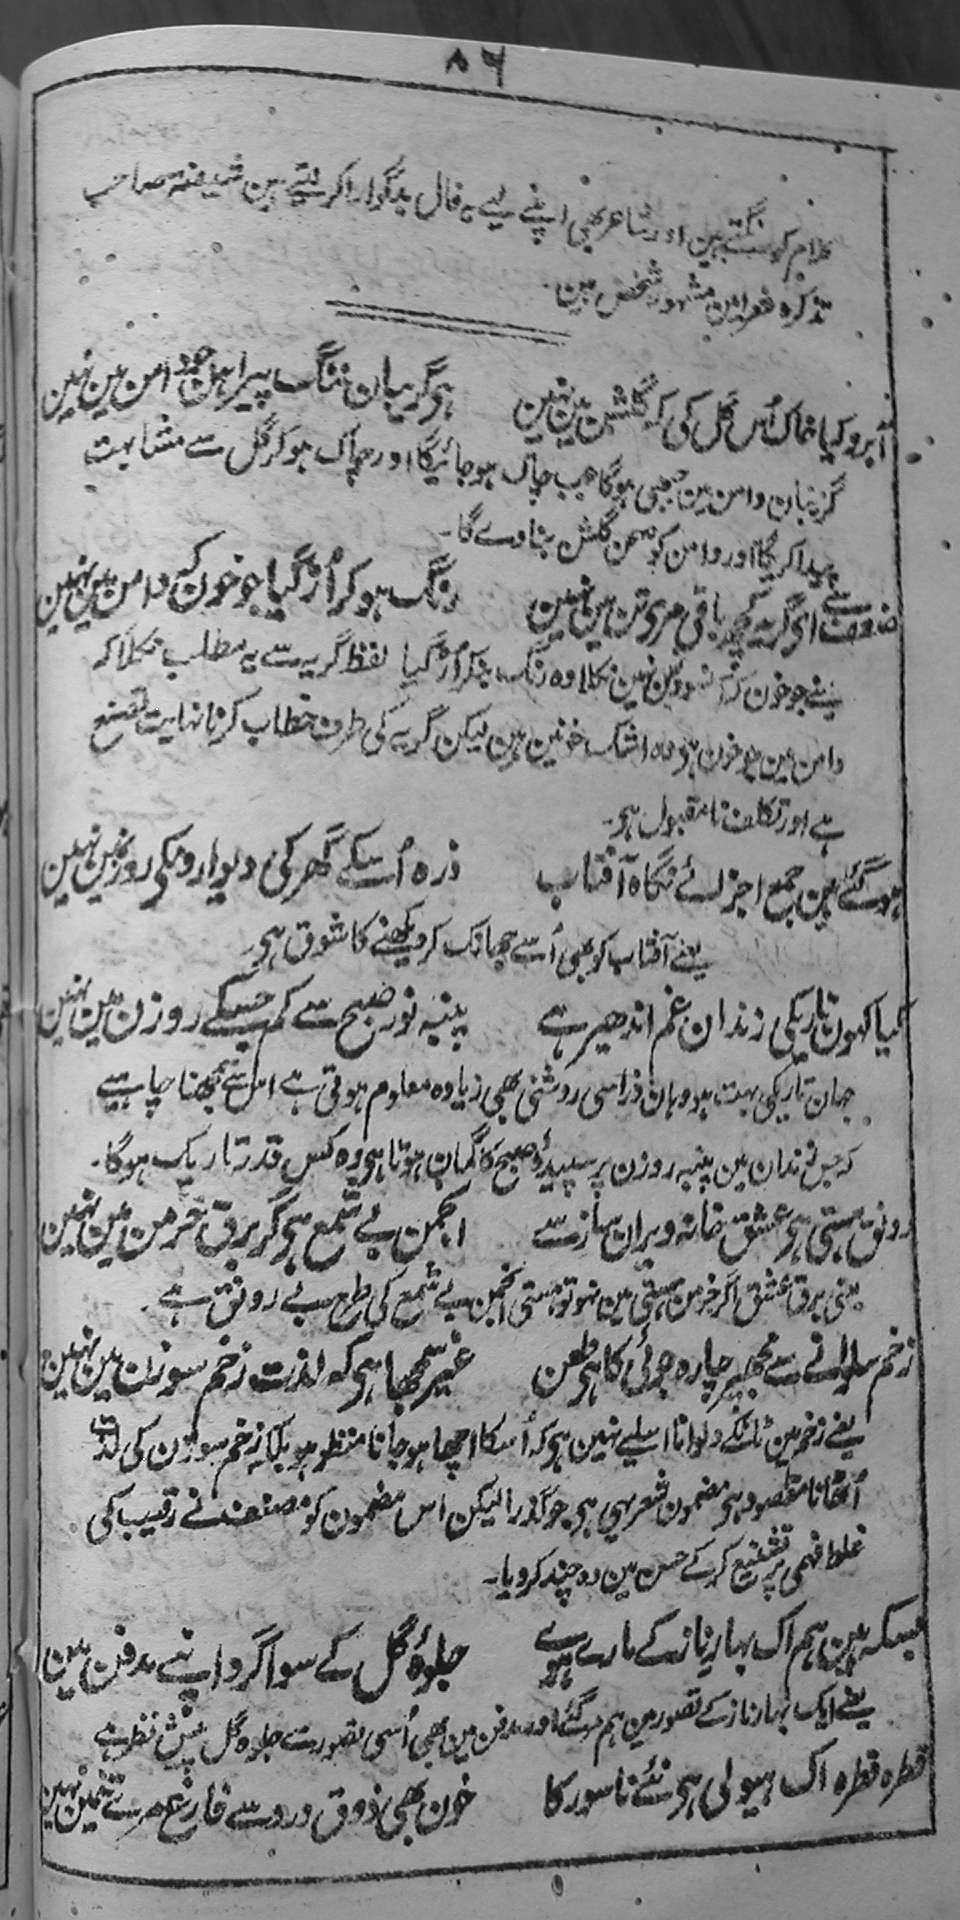 ۸۶
کلام کو سنتے ہین اور شاعر بھی اپنے لیے یہ فال بد گوارا کر لیتے ہین شیفتہ صاحب
تذکرہ شعرا مین مشہور شخص ہین
آبرو کیا خاک اُس گل کی کہ گلشن مین نہین ہو گریبان ننگ پیراہن جو دامن مین نہین
گریبان دامن مین جبھی ہوگا جب چاک ہو جائیگا اور چاک ہو کر گل سے مشابہت
پیدا کریگا اور دامن کو صحن گلشن بنا دے گا۔
ضعف سے ای گریہ کچھ باقی مری تن مین نہین رنگ ہو کر اُڑ گیا جو خون کہ دامن مین نہین
یعنے جو خون کہ آنسوون مین نہین نکلا وہ رنگ بنکر اُڑ گیا لفظ گریہ سے یہ مطلب نکلا کہ
دامن مین جو خون ہو وہ اشک خونین ہین لیکن گریہ کی طرف خطاب کرنا نہایت تصنع
ہے اور تکلف نا مقبول ہو۔
ہو گئے ہین جمع اجزائے نگاہ آفتاب ذرہ اُسکے گھر کی دیوارونکی روزن مین نہین
یعنے آفتاب کو بھی اُسے جھانک کر دیکھنے کا شوق ہو
کیا کہون تاریکی زندان غم اندھیر ہے پنبہ نور صبح سے کم جسکے روزن مین نہین
جہان تاریکی بہت ہو وہان ذرا سی روشنی بھی زیادہ معلوم ہوتی ہے اس سے سمجھنا چاہیے
کہ جس زندان مین پنبہ روزن پر سپیدۂ صبح کا گمان ہوتا ہو وہ کس قدر تاریک ہوگا۔
رونق ہستی ہو عشق خانہ ویران ساز سے انجمن بے شمع ہو گر برق خرمن مین نہین
یعنی برق عشق اگر خرمن ہستی مین نہو تو ہستی انجمن بے شمع کی طرح بے رونق ہے۔
زخم سلوانے سے مجھپر چارہ جوئی کا ہو طعن غیر سمجھا ہو کہ لذت زخم سوزن مین نہین
یعنے زخم مین ٹانکے دلوانا اسلیے نہین ہو کہ اُسکا اچھا ہو جانا منظور ہو بلکہ زخم سوزن کی لذت
اُٹھانا مقصود ہو مضمون شعر یہی ہو جو گذرا لیکن اس مضمون کو مصنف نے رقیب کی
غلط فہمی پر تشنیع کر کے حسن مین دہ چند کر دیا۔
بسکہ ہین ہم اک بہار ناز کے مارے ہوے جلوۂ گل کے سوا گرد اپنے مدفن مین نہین
یعنے ایک بہار ناز کے تصور مین ہم مر گئے اور مدفن مین بھی اُسی تصور سے جلوہ گل پیش نظر ہے
قطرہ قطرہ اک ہیولی ہو نئے ناسور کا خون بھی ذوق درد سے فارغ مرے تن مین نہین